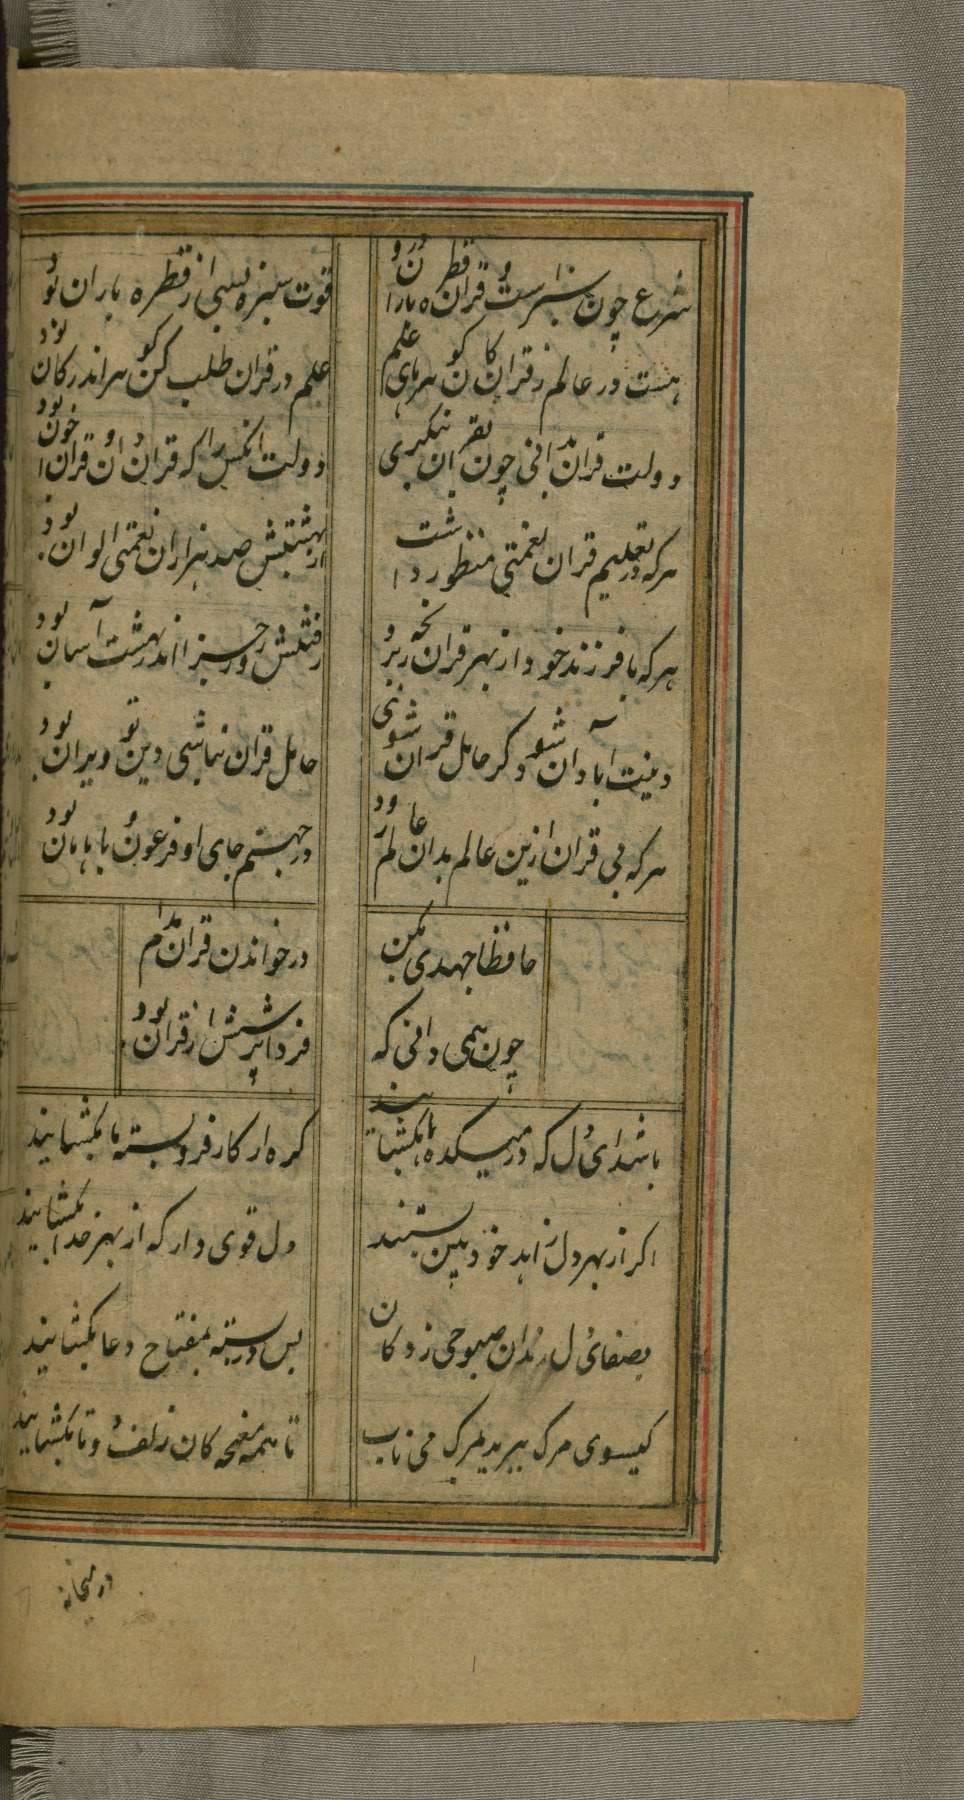 شرع چون سبزست و قران قطره باران درو
قوت سبزه نسبی از قطره باران بود
هست در عالم ز قران کان کوهرهای علم
علم در قران طلب کن کوهر اندر کان بود
دولت قران ندانی چون بقران ننکری
دولت انکس را که قران
هر که در تعلیم قران نعمتی منظور داشت
در بهشتش صد هزاران نعمتی الوان بود
هر که با فرزند خود از بهر قران رنجه برد
رفتنش روز جزا اندر بهشت آسان بود
دینت آبادان شود کر حامل قران شوی
حامل قران نباشی دین تو ویران بود
هر که بی قران ازین عالم بدان عالم رود
در جهنم جای او فرعون و با هامان بود
حافظا جهدی بکن
در خواندن قران مدام
چون همی دانی که
فردا پرسش از قران بود
باشد ای دل که در میکده ها بکشایند
کره از کار فروبسته ما بکشایند
اکر از بهر دل زاهد خود بین بستند
دل قوی دار که از بهر خدا بکشایند
بصفای دل رندان صبوحی زدکان
بس در بسته بمفتاح دعا بکشایند
کیسوی مرک ببرید بمرک می ناب
تا همه مغبچه کان زلف دو تا بکشایند
در میخانه